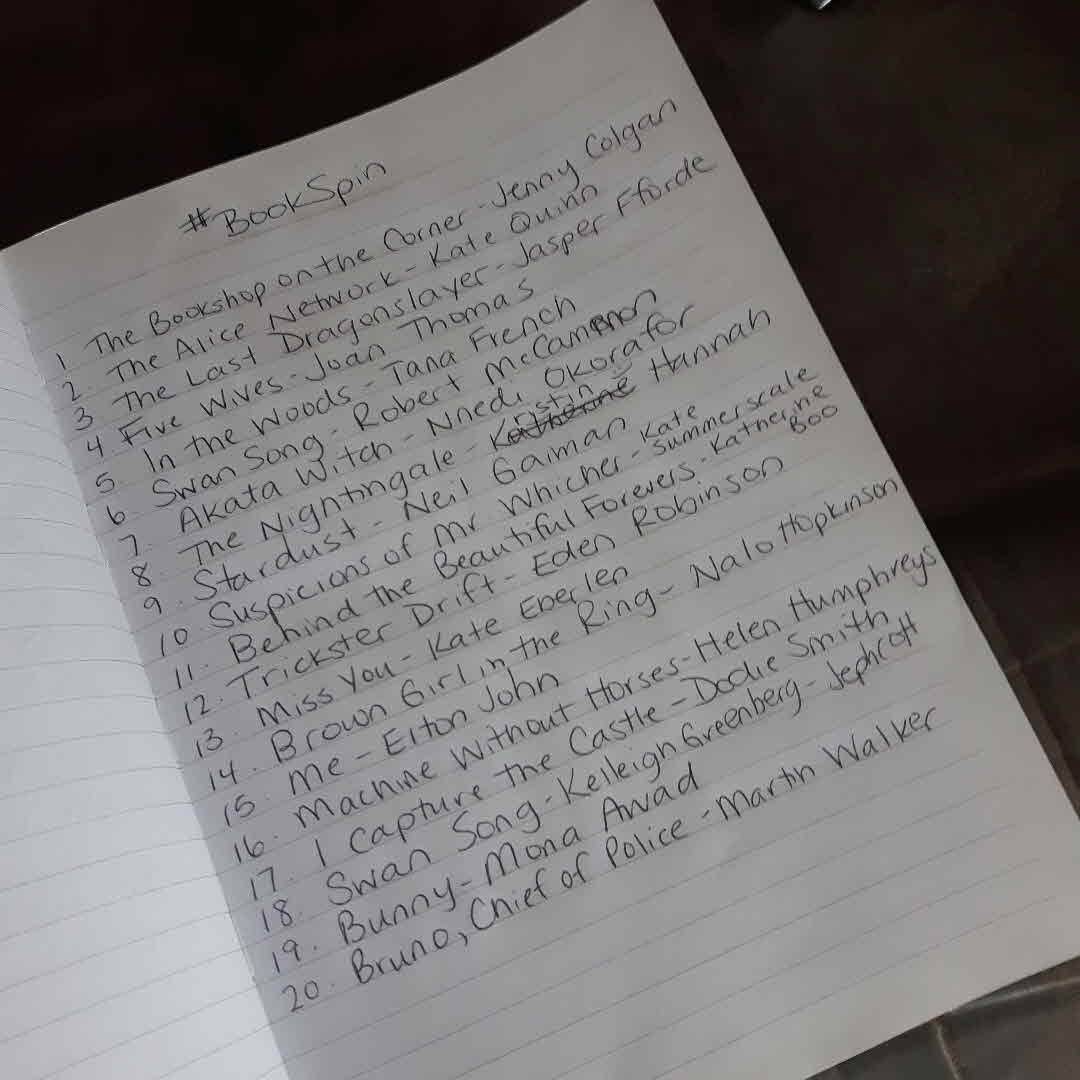 #BookSpin
1 The Bookshop on the Corner - Jenny Colgan
2. The Alice Network - Kate Quinn
3 The Last Dragonslayer - Jasper Fforde
4. Five Wives - Joan Thomas
5. In the Woods - Tana French
6 Swan Song - Robert McCammon
7. Akata Witch - Nnedi Okorafor
8. The Nightingale - Kristin Hannah
9. Stardust - Neil Gaiman
10 Suspicions of Mr Whicher - Kate Summerscale
11. Behind the Beautiful Forevers - Katherine Boo
12. Trickster Drift - Eden Robinson
13 Miss You - Kate Eberlen
14. Brown Girl in the Ring - Nalo Hopkinson
15. Me - Elton John
16. Machine Without Horses - Helen Humphreys
17. I Capture the Castle - Dodie Smith
18. Swan Song - Kelleigh Greenberg - Jephcott
19. Bunny - Mona Awad
20. Bruno, Chief of Police - Martin Walker